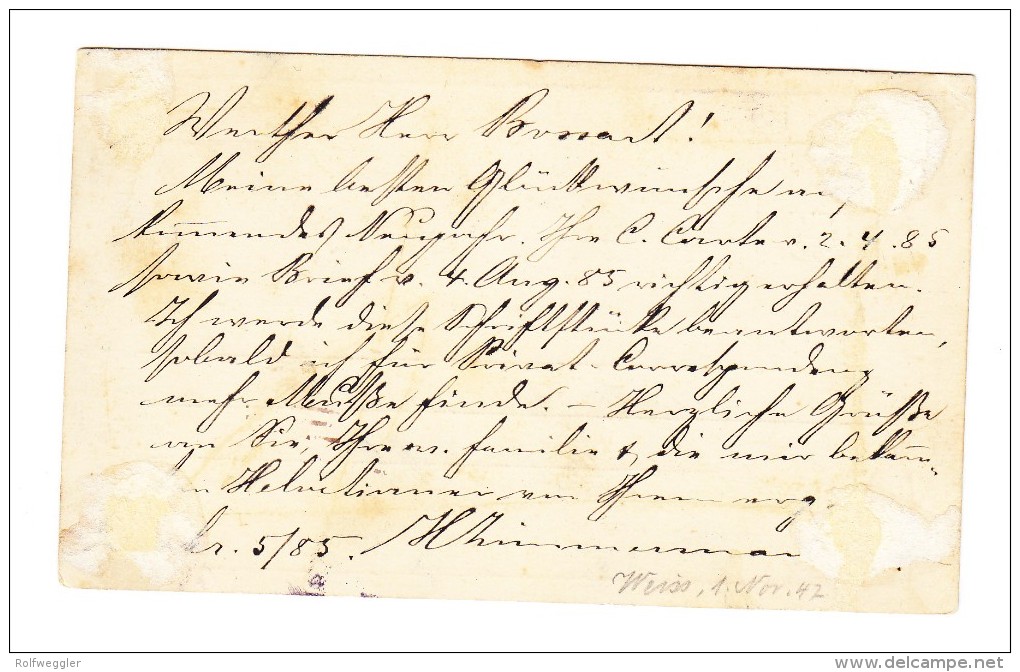 Werther Herr Bossard!
Meine besten Glückwünsche zum
kommendes Neujahr. Ihre C. Carte v. 2. 4. 85
sowie Brief v. 4. Aug. 85 richtig erhalten.
Ich werde diese Schriftstücke beantworten,
sobald ich für Privat-Correspondenz
mehr Muße finde. – Herzliche Grüße
an Sie, Ihre w. Familie & die mir bekann-
Helvetianer von Ihrem erg.
5/85. Zimmermann
Weiss, 1. Nov. 47
Rolfweggler
www.delcampe.net